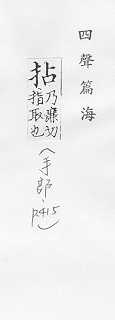 四聲篇海
拈
乃兼切
指取也
(手部、P415)